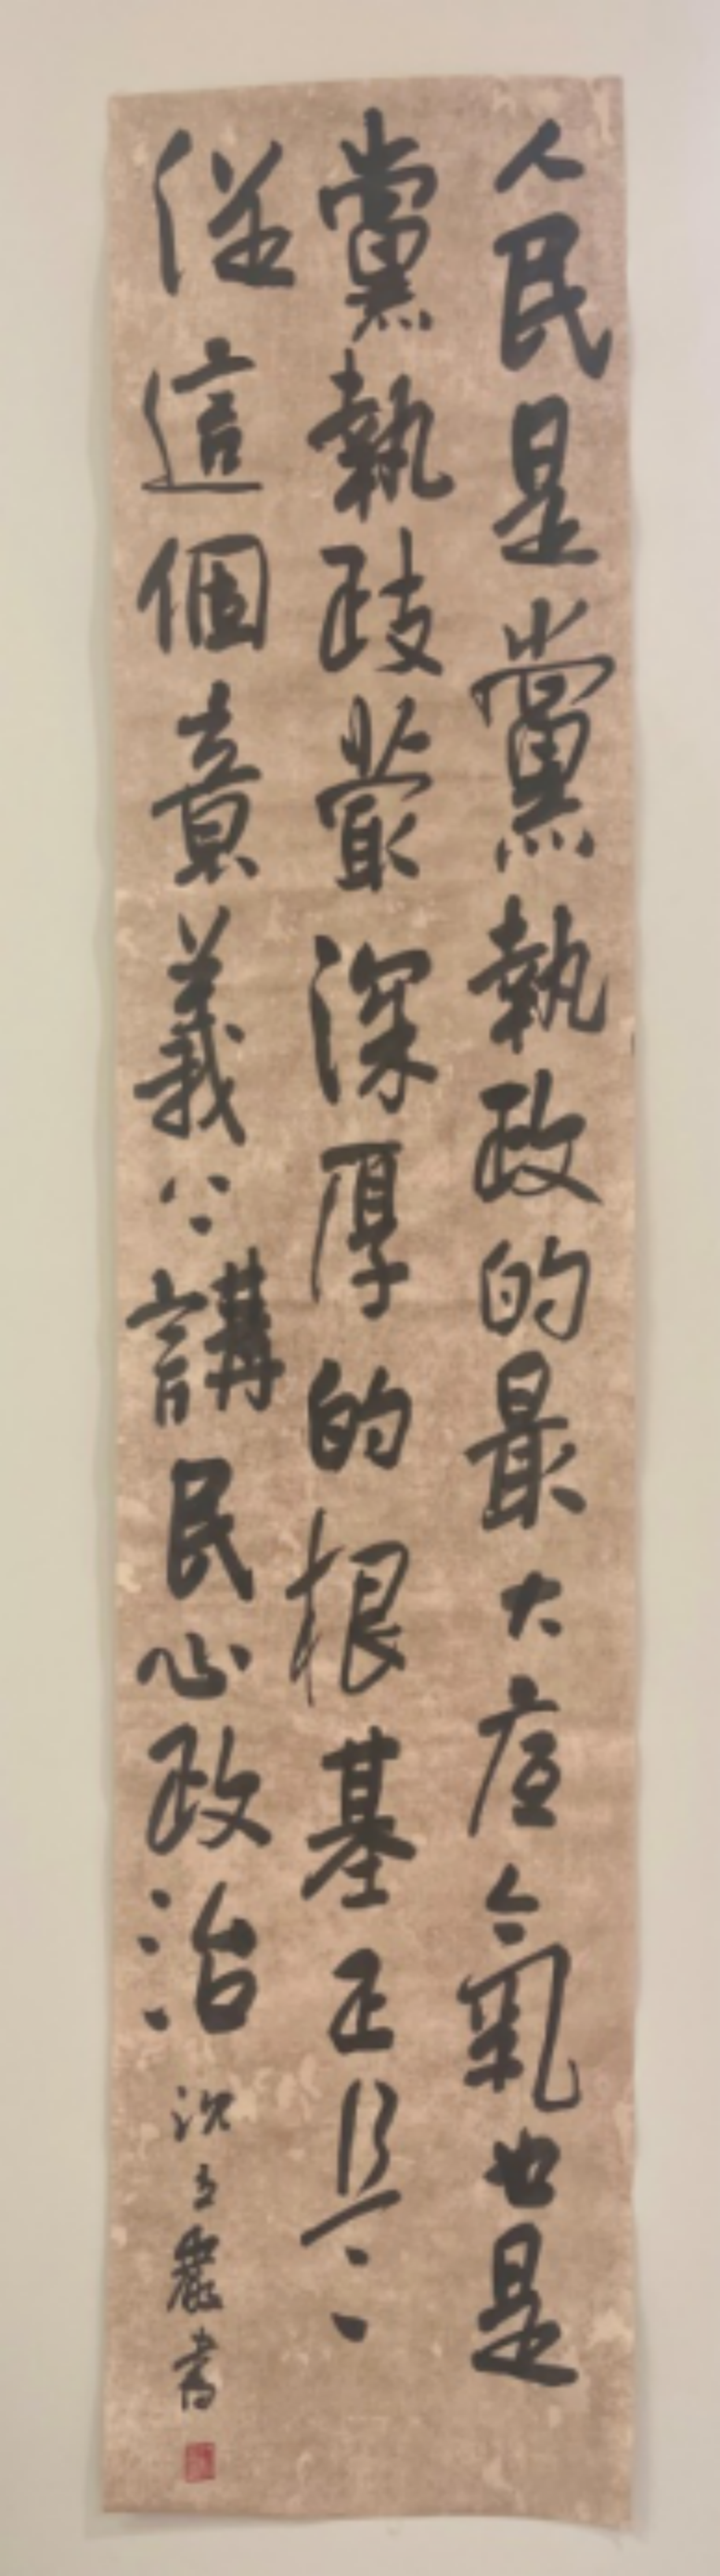 人民是黨執政的最大底氣也是
黨執政最深厚的根基正
從這個意義上講民心政治
沈 書